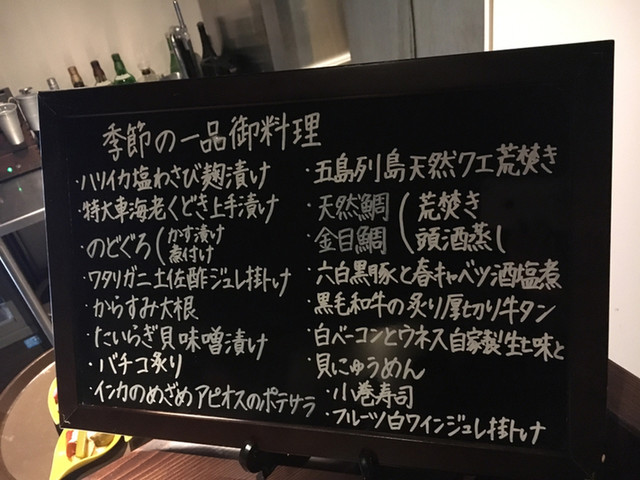 季節の一品御料理
・ハリイカ塩わさび麹漬け
・特大車海老くどき上手漬け
・のどぐろ(かす漬け
煮付け
・ワタリガニ土佐酢ジュレ掛け
・からすみ大根
・たいらぎ貝味噌漬け
・バチコ炙り
・インカのめざめアピオスのポテサラ
・五島列島天然クエ荒焚き
・天然鯛(荒焚き
・金目鯛(頭酒蒸し
・六白黒豚と春キャベツ酒塩煮
・黒毛和牛の炙り厚切り牛タン
・白ベーコンとウネス自家製生七味と
・貝にゅうめん
・小巻寿司
・フルーツ白ワインジュレ掛け